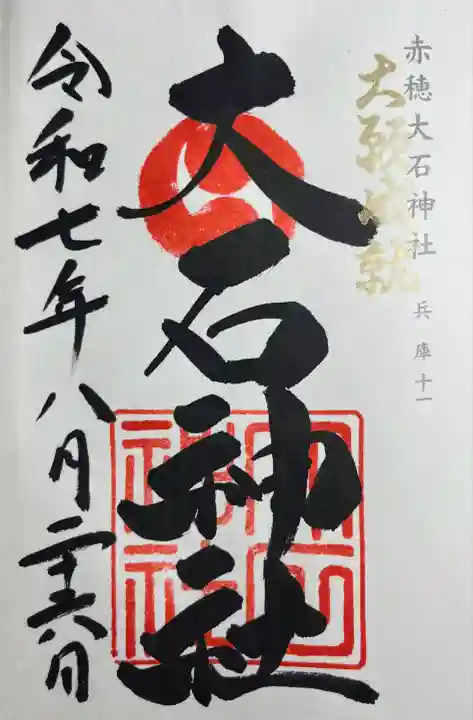 赤穂大石神社 兵庫十一
大願成就
大石神社
大石神社
令和七年八月二十六日